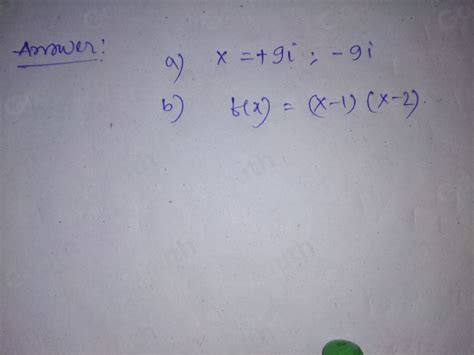 Answer:
a) x = +9i ; -9i
b) f(x) = (x-1) (x-2).